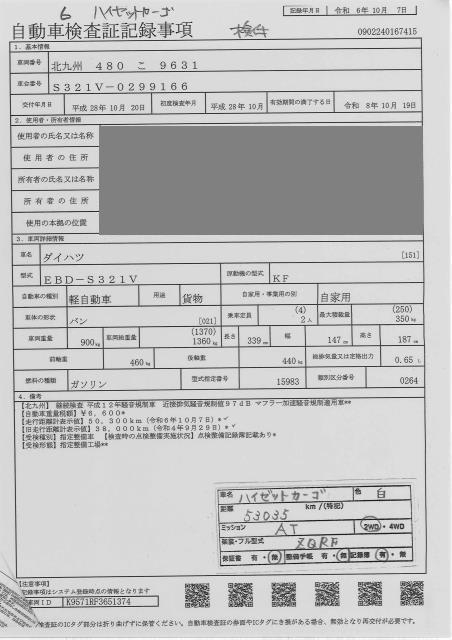 6 ハイゼットカーゴ
記録年月日 令和 6年10月 7日
自動車検査証記録事項
検付
0902240167415
1．基本情報
車両番号 北九州 480 こ 9631
車台番号 S321V-0299166
交付年月日 平成 28年 10月 20日 初度検査年月 平成 28年 10月 有効期間の満了する日 令和 8年 10月 19日
2．使用者・所有者情報
使用者の氏名又は名称
使用者の住所
所有者の氏名又は名称
所有者の住所
使用の本拠の位置
3．車両詳細情報
車名 ダイハツ [151]
型式 EBD-S321V 原動機の型式 KF
自動車の種別 軽自動車 用途 貨物 自家用・事業用の別 自家用
車体の形状 バン [021] 乗車定員 (4) 2人 最大積載量 (250) 350kg
車両重量 900kg 車両総重量 (1370) 1360kg 長さ 339cm 幅 147cm 高さ 187cm
前軸重 460kg 後軸重 440kg 総排気量又は定格出力 0.65L
燃料の種類 ガソリン 型式指定番号 15983 類別区分番号 0264
4．備考
【北九州】 継続検査 平成12年騒音規制車 近接排気騒音規制値97dB マフラー加速騒音規制適用車**
【自動車重量税額】¥6,600*
【走行距離計表示値】50,300km（令和6年10月7日）*
【旧走行距離計表示値】38,000km（令和4年9月29日）*
【受検種別】指定整備車 【検査時の点検整備実施状況】点検整備記録簿記載あり*
【受検形態】指定整備工場**
車名 ハイゼットカーゴ 色 白
距離 53035 km /(特記)
ミッション AT 2WD・4WD
架装・フル型式 ZQRF
保証書 有・無 整備手帳 有・無 記録簿 有・無
【注意事項】
記録事項はシステム登録時点の情報となります
車両ID K9571RF3651374
検査証のICタグ部分は折り曲げずに保管ください。自動車検査証の券面やICタグにき損がある場合、無効となり再交付が必要です。